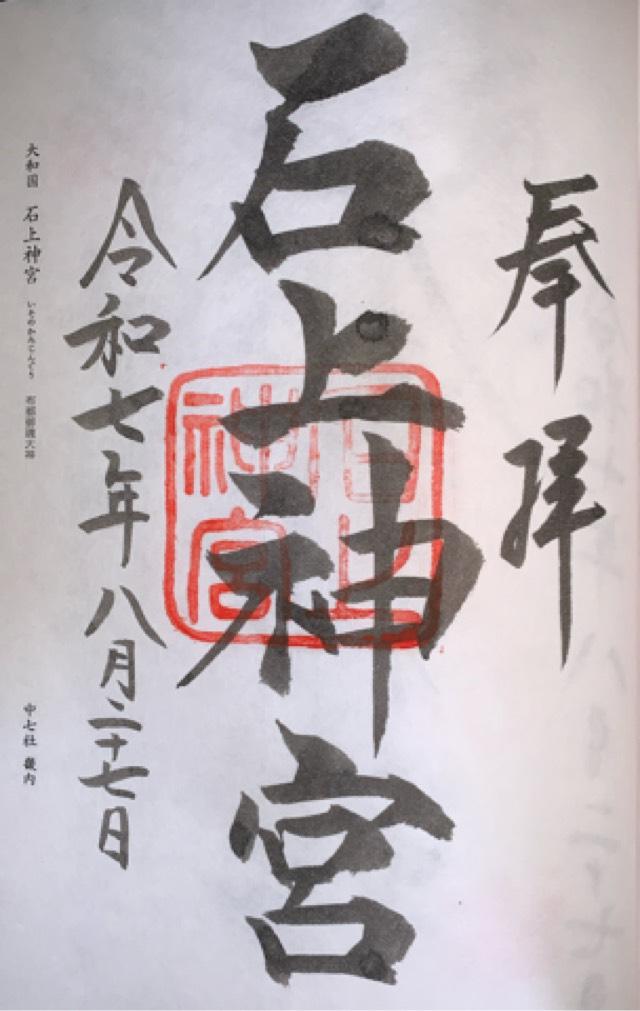 奉拝
石上神宮
石上神宮
令和七年八月二十七日
大和国 石上神宮 いそのかみじんぐう 布都御魂大神
中七社 畿内